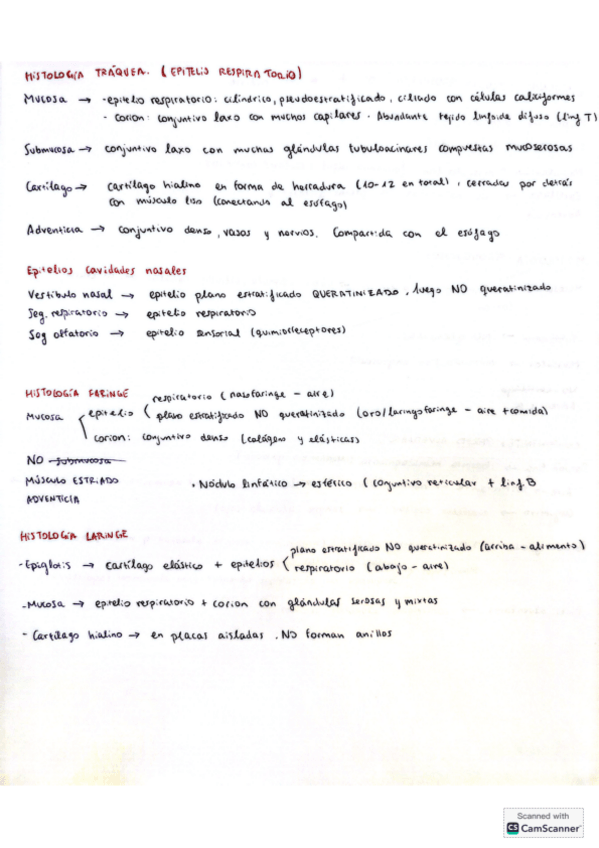 HISTOLOGÍA TRÁQUEA. (EPITELIO RESPIRATORIO)
Mucosa → - epitelio respiratorio: cilíndrico, pseudoestratificado, ciliado con células caliciformes
- corion: conjuntivo laxo con muchos capilares. Abundante tejido linfoide difuso (linf T)
Submucosa → conjuntivo laxo con muchas glándulas tubuloacinares compuestas mucoserosas
Cartílago → cartílago hialino en forma de herradura (10-12 en total), cerradas por detrás
con músculo liso (conectando al esófago)
Adventicia → conjuntivo denso, vasos y nervios. Compartida con el esófago
Epitelios cavidades nasales
Vestíbulo nasal → epitelio plano estratificado QUERATINIZADO, luego NO queratinizado
Seg. respiratorio → epitelio respiratorio
Seg olfatorio → epitelio sensorial (quimiorreceptores)
HISTOLOGÍA FARINGE
respiratorio (nasofaringe - aire)
Mucosa epitelio plano estratificado NO queratinizado (oro/laringofaringe - aire + comida)
corion: conjuntivo denso (colágeno y elásticas)
NO submucosa
MÚSCULO ESTRIADO • Nódulo linfático → esférico (conjuntivo reticular + linf B
ADVENTICIA
HISTOLOGÍA LARINGE
plano estratificado NO queratinizado (arriba - alimento)
- Epiglotis → cartílago elástico + epitelios respiratorio (abajo - aire)
- Mucosa → epitelio respiratorio + corion con glándulas serosas y mixtas
- Cartílago hialino → en placas aisladas. NO forman anillos
Scanned with
CS CamScanner